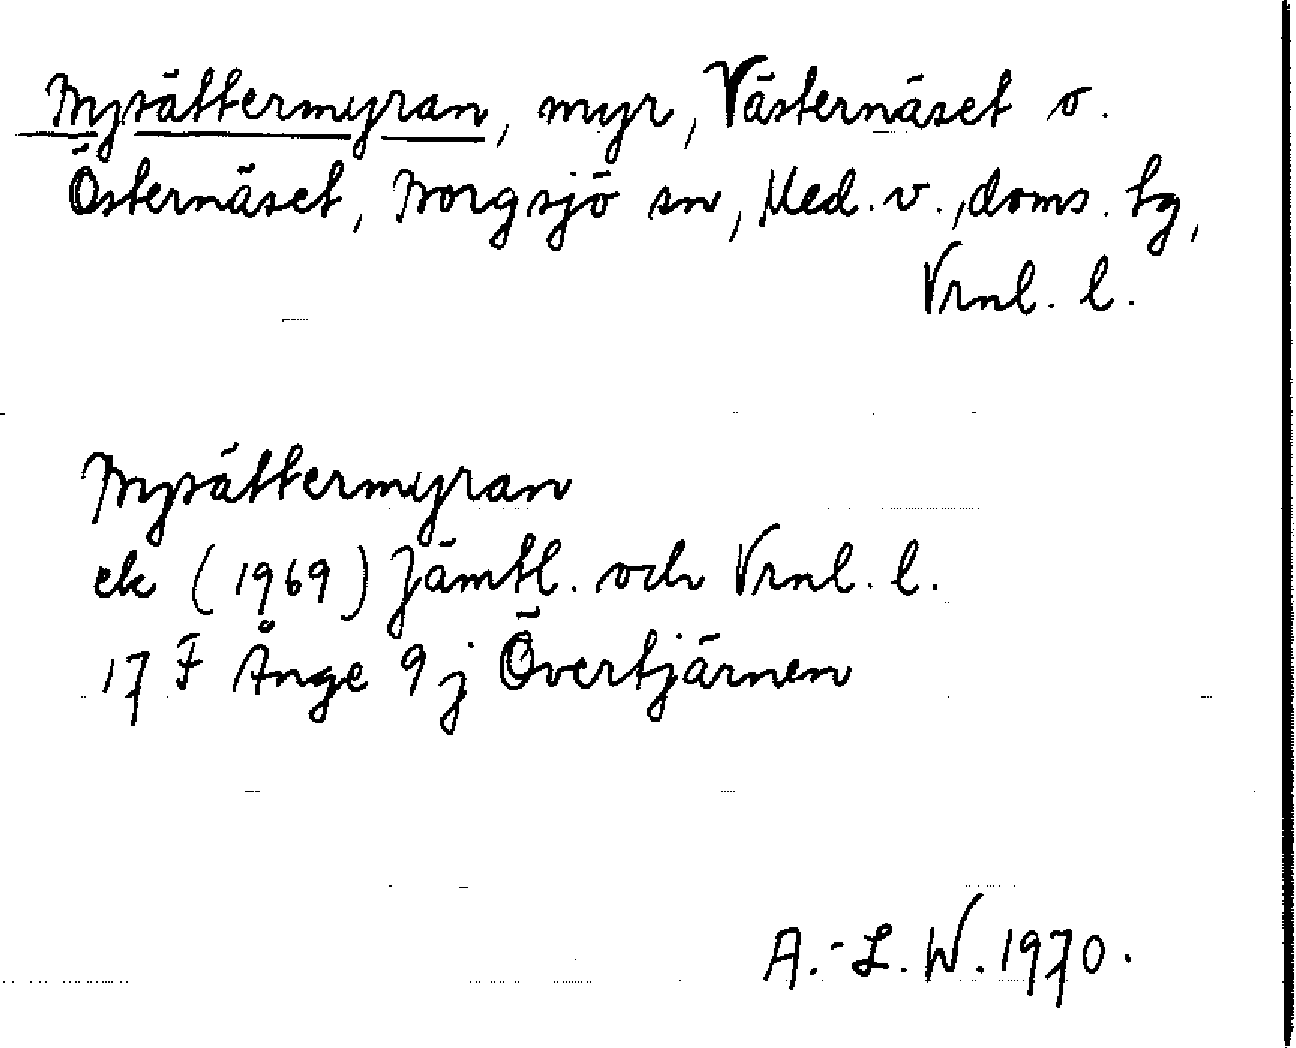 Nysättermyran, myr, Västernäset o.
Östernäset, Borgsjö sn, Med. v., doms. tg,
Vrnl. l.
Nysättermyran
ek (1969) Jämtl. och Vrnl. l.
17 F Ånge 9 j Övertjärnen
A.-L. W. 1970.